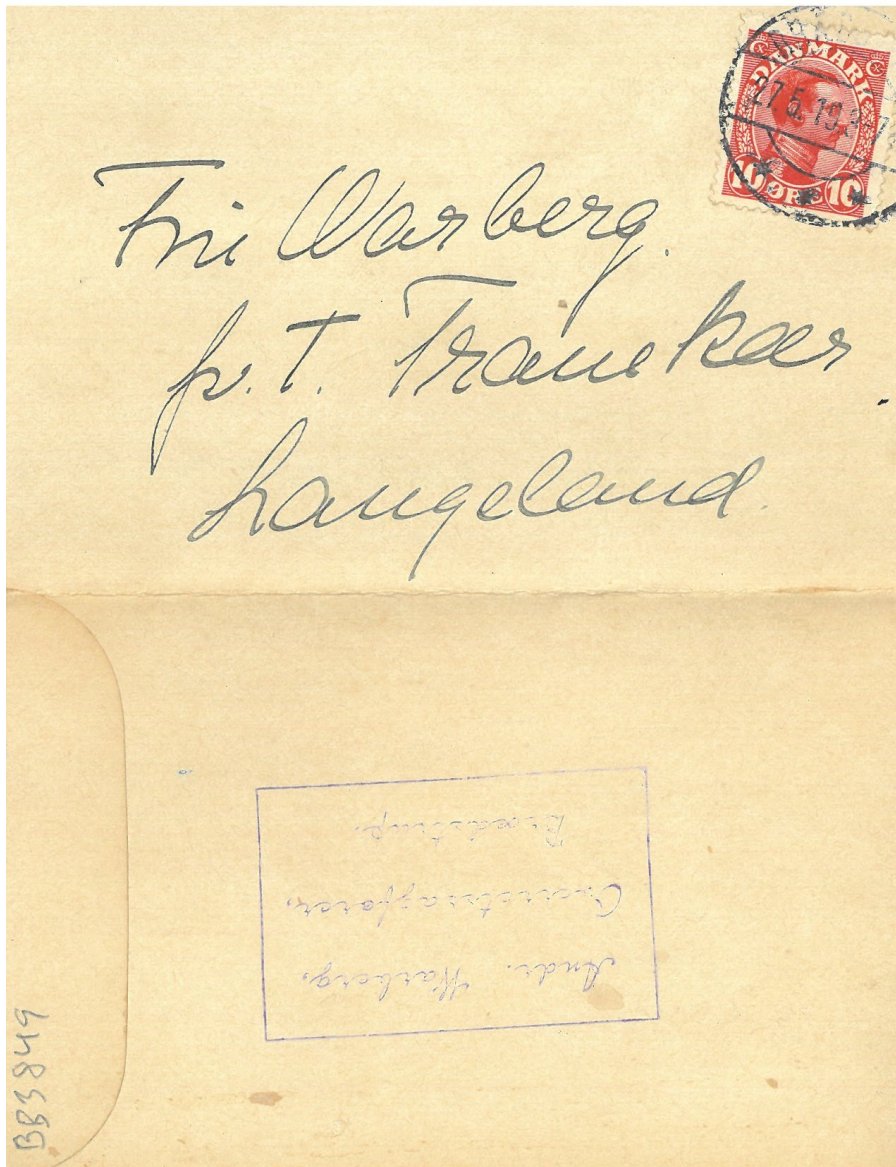 DANMARK
27.5.19.3-7
10 ØRE 10
Fru Warberg.
p.t. Tranekær
Langeland.
Andr. Warberg,
Overretssagfører,
Brædstrup.
BB3849